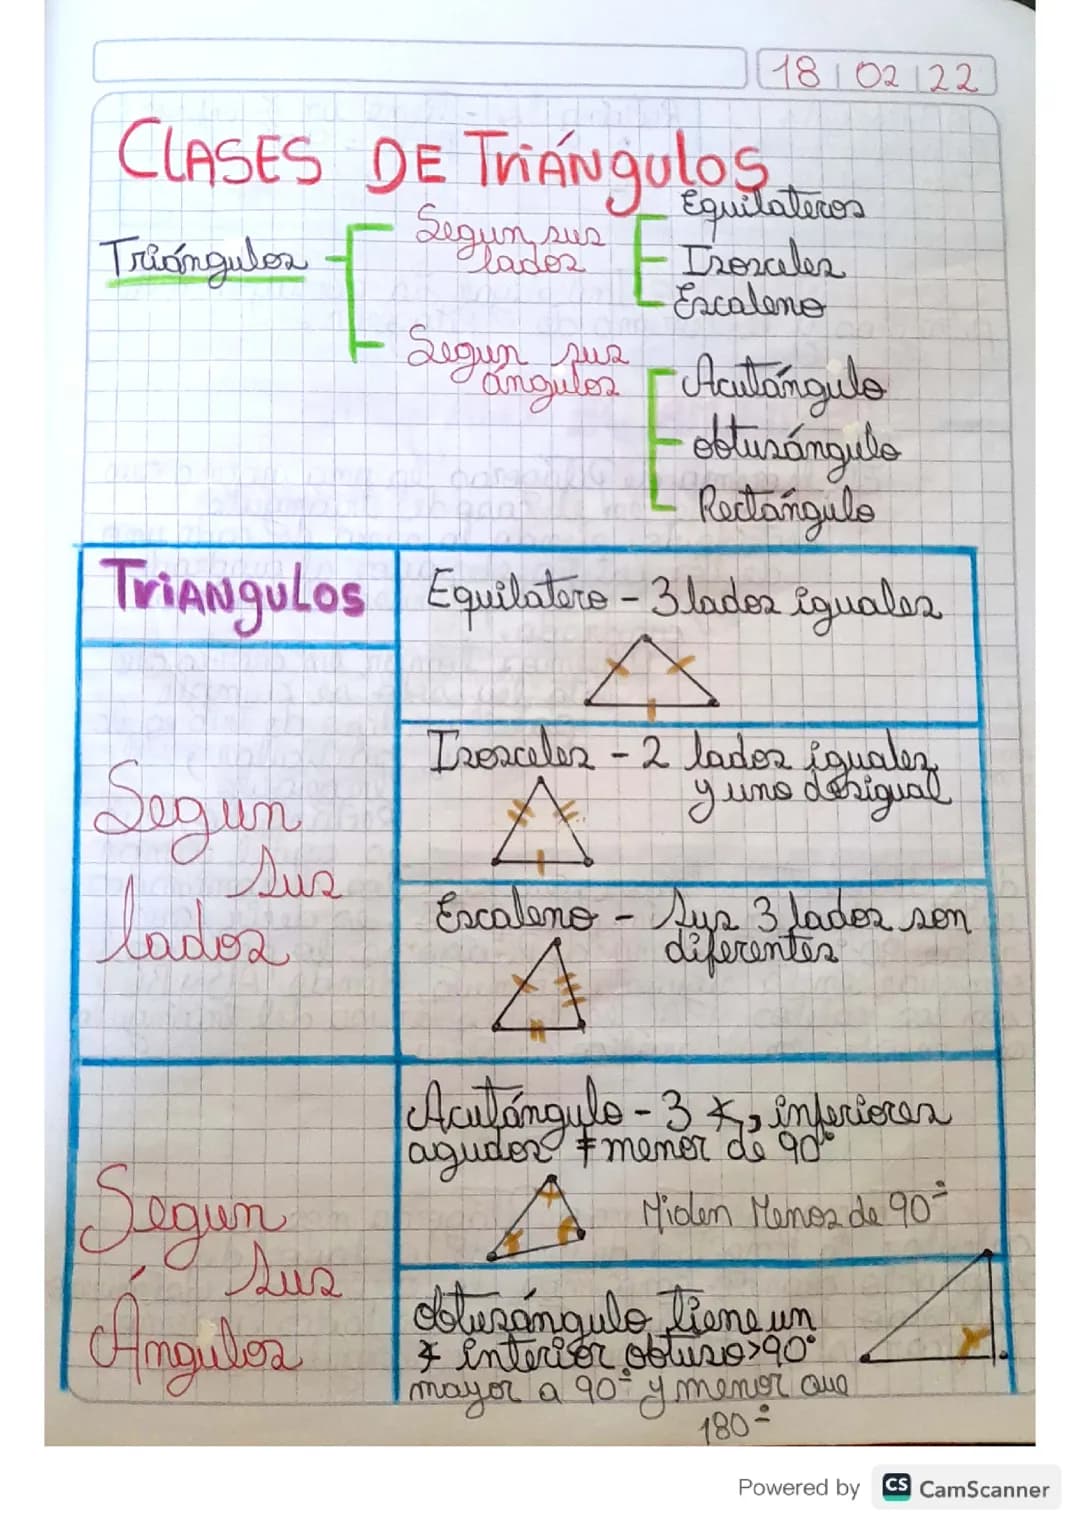 18 | 02 | 22
CLASES DE TRIÁNGULOS
Triángulos
Segun sus
lados
Equilateros
Isosceles
Escaleno
Segun sus
ángulos
Acutángulo
obtusángulo
Rectángulo
TRIANGULOS
Equilatero - 3 lados iguales
Segun
sus
lados
Isosceles - 2 lados iguales
y uno desigual
Escaleno - Sus 3 lados son
diferentes
Segun
sus
Ángulos
Acutángulo - 3 ∡s inferiores
agudos ≠ menor de 90°
Miden Menos de 90°
obtusángulo tiene un
∡ interior obtuso >90°
mayor a 90° y menor que
180°
Powered by CS CamScanner